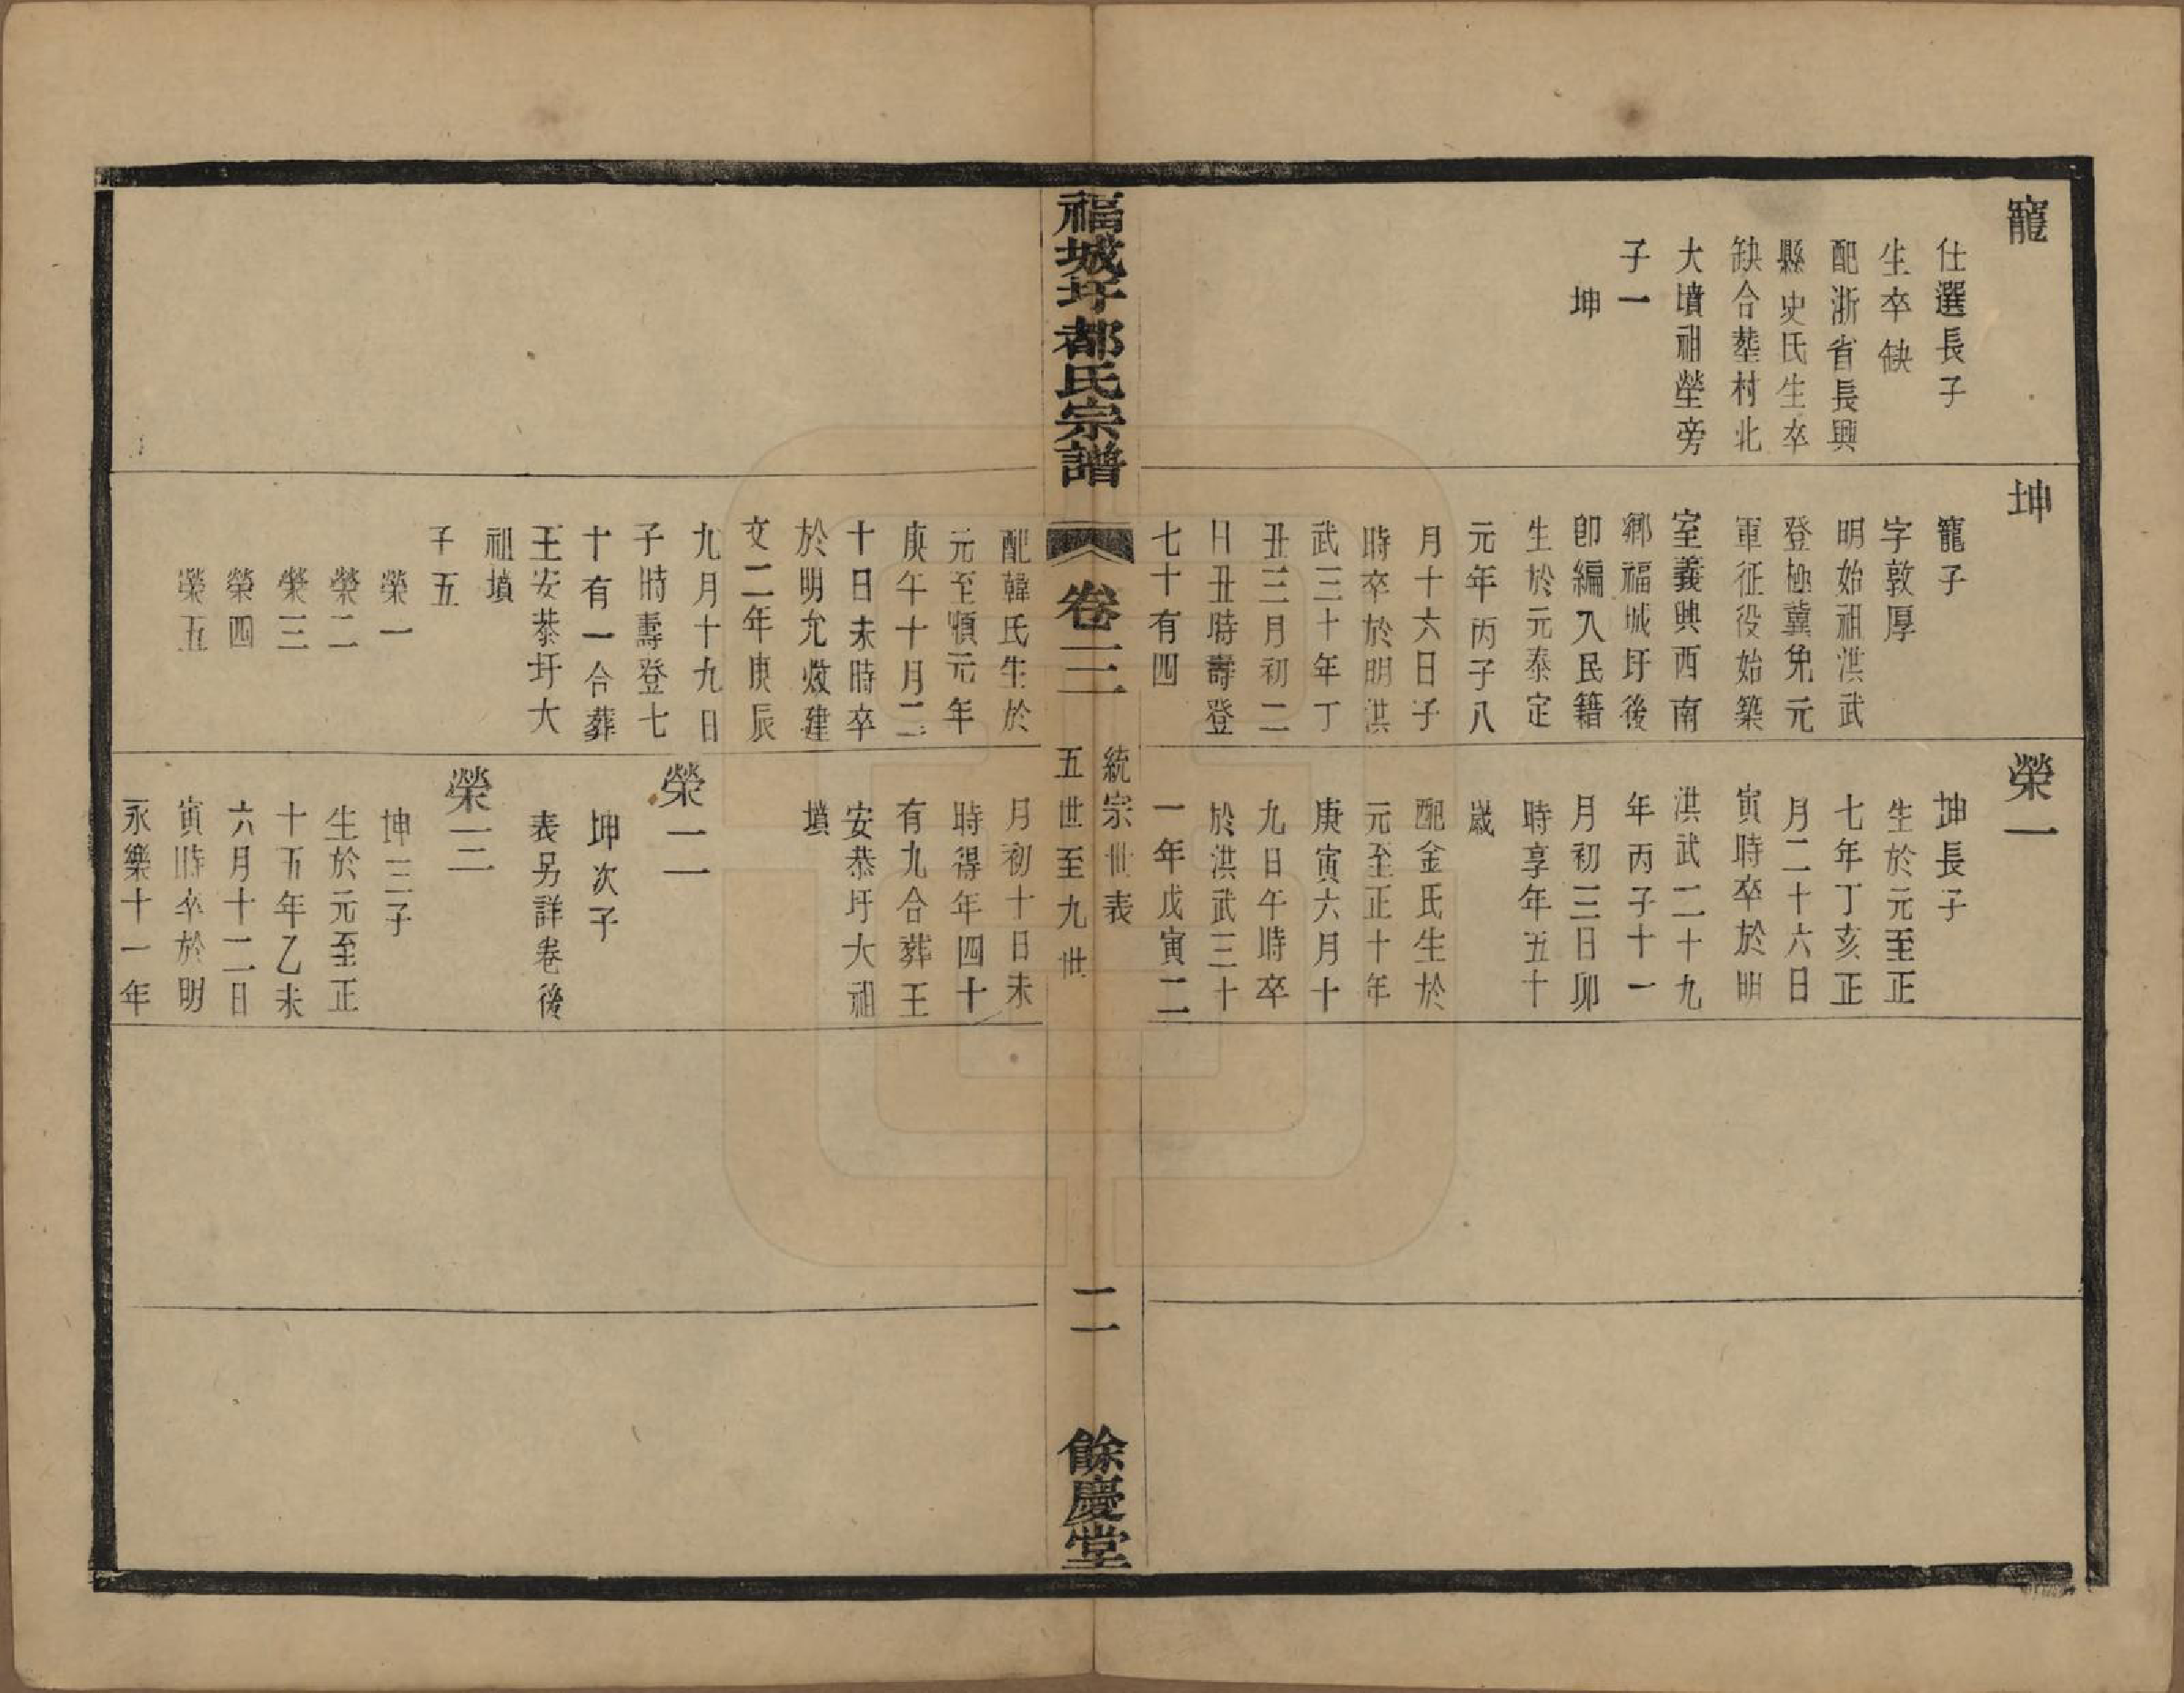 寵
仕選長子
生卒缺
配浙省長興
縣史氏生卒
缺合塟村北
大墳祖塋旁
子一
坤
坤
寵子
字敦厚
明始祖洪武
登極蠲免元
軍征役始築
室義興西南
鄉福城圩後
卽編入民籍
生於元泰定
元年丙子八
月十六日子
時卒於明洪
武三十年丁
丑三月初二
日丑時壽登
七十有四
配韓氏生於
元至順元年
庚午十月二
十日未時卒
於明允炆建
文二年庚辰
九月十九日
子時壽登七
十有一合葬
王安恭圩大
祖墳
子五
榮一
榮二
榮三
榮四
榮五
榮一
坤長子
生於元至正
七年丁亥正
月二十六日
寅時卒於明
洪武二十九
年丙子十一
月初三日卯
時享年五十
歲
配金氏生於
元至正十年
庚寅六月十
九日午時卒
於洪武三十
一年戊寅二
月初十日未
時得年四十
有九合葬王
安恭圩大祖
墳
榮二
坤次子
表另詳卷後
榮三
坤三子
生於元至正
十五年乙未
六月十二日
寅時卒於明
永樂十一年
福城圩都氏宗譜
卷三
統宗世表
五世至九世
二
餘慶堂